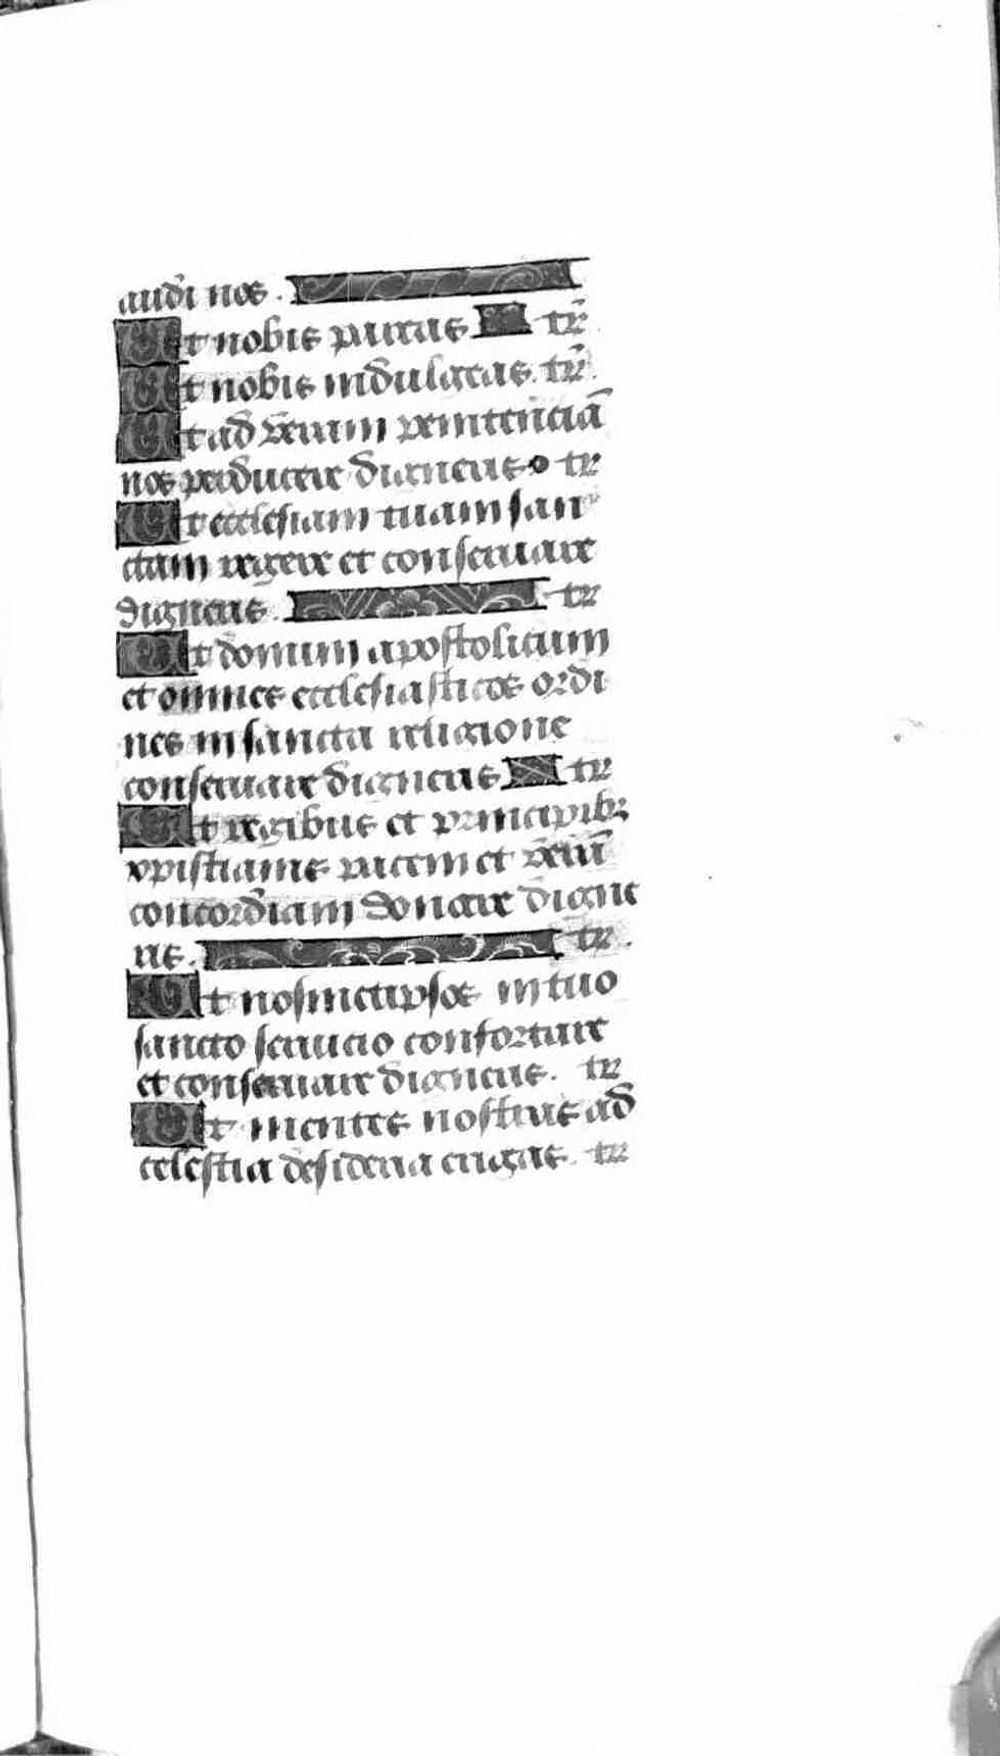 audi nos.
Ut nobis parcas tr̃
Ut nobis indulgeas. tr̃.
Ut ad veram penitenciã
nos perducere digneris tr
Ut ecclesiam tuam san
ctam regere et conseruare
digneris. tr
Ut domum apostolicum
et omnes ecclesiasticos ordi
nes in sancta religione
conseruare digneris tr
Ut regibus et principib;
xpistianis pacem et verã
concordiam donare digne
ris. tr.
Ut nosmetipsos in tuo
sancto seruicio confortare
et conseruare digneris. tr
Ut mentes nostras ad
celestia desideria erigas. tr